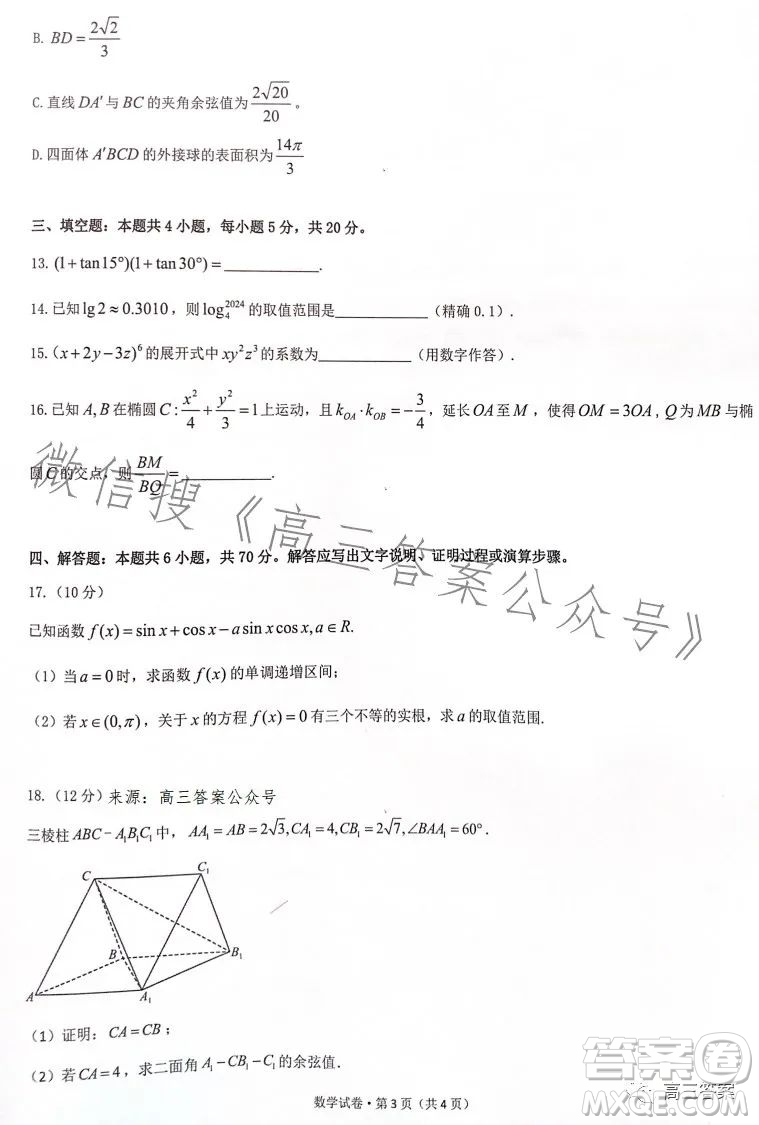 B. BD = \frac{2\sqrt{2}}{3}
C.直线 DA′ 与 BC 的夹角余弦值为 \frac{2\sqrt{20}}{20} 。
D.四面体 A′BCD 的外接球的表面积为 \frac{14π}{3}
三、填空题：本题共 4 小题，每小题 5 分，共 20 分。
13. (1+tan15°)(1+tan30°) = ___________.
14.已知 lg2≈0.3010，则 log_4^{2024} 的取值范围是___________（精确 0.1）.
15. (x+2y−3z)^6 的展开式中 xy^2z^3 的系数为___________（用数字作答）.
16.已知 A,B 在椭圆 C: \frac{x^2}{4}+\frac{y^2}{3}=1 上运动，且 k_{OA}·k_{OB}=−\frac{3}{4}，延长 OA 至 M，使得 OM=3OA，Q 为 MB 与椭
圆 C 的交点，则 \frac{BM}{BQ} = ___________.
微信搜《高三答案公众号》
四、解答题：本题共 6 小题，共 70 分。解答应写出文字说明、证明过程或演算步骤。
17.（10 分）
已知函数 f(x)=sin x+cos x−a sin x cos x, a∈R.
（1）当 a=0 时，求函数 f(x) 的单调递增区间；
（2）若 x∈(0,π)，关于 x 的方程 f(x)=0 有三个不等的实根，求 a 的取值范围.
18.（12 分）来源：高三答案公众号
三棱柱 ABC−A_1B_1C_1 中， AA_1=AB=2\sqrt{3}, CA_1=4, CB_1=2\sqrt{7}, ∠BAA_1=60°.
C
C_1
B
B_1
A
A_1
（1）证明：CA=CB；
（2）若 CA=4，求二面角 A_1−CB_1−C_1 的余弦值.
数学试卷·第 3 页（共 4 页）
答案卷
高三答案
MXQE.COM